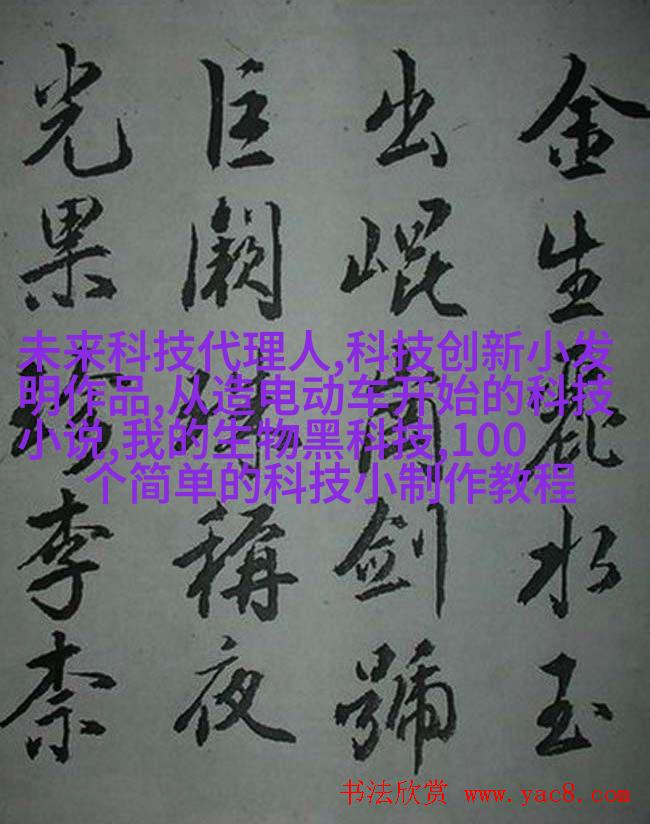 金生麗水玉
出崐岡剑號
巨闕珠稱夜
光果珍李柰
未来科技代理人,科技创新小发
明作品,从造电动车开始的科技
小说,我的生物黑科技,100
个简单的科技小制作教程
书法欣赏 www.yac8.com